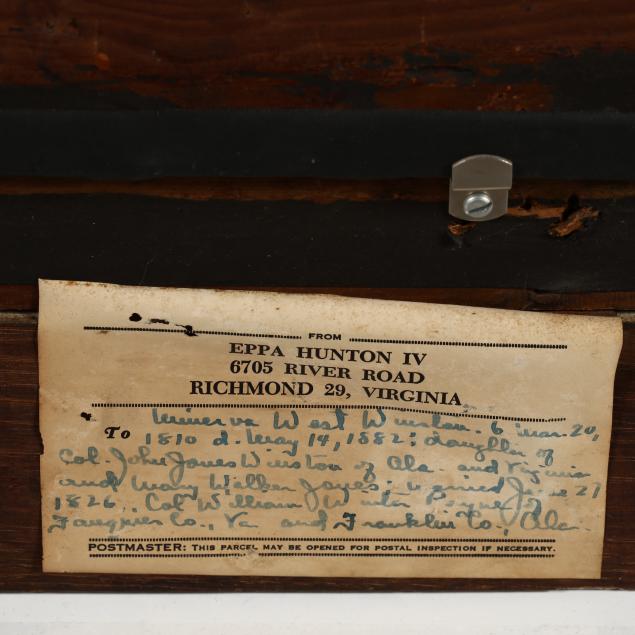 FROM
EPPA HUNTON IV
6705 RIVER ROAD
RICHMOND 29, VIRGINIA
To Minerva West Winston. b Mar. 20,
1810 d. May 14, 1882; daughter of
Col. John Jones Winston of Ala. and Virginia
and Mary Walker Jones; married June 27
1826, Col William Winter Payne of
Fauquier Co., Va and Franklin Co., Ala.
POSTMASTER: THIS PARCEL MAY BE OPENED FOR POSTAL INSPECTION IF NECESSARY.